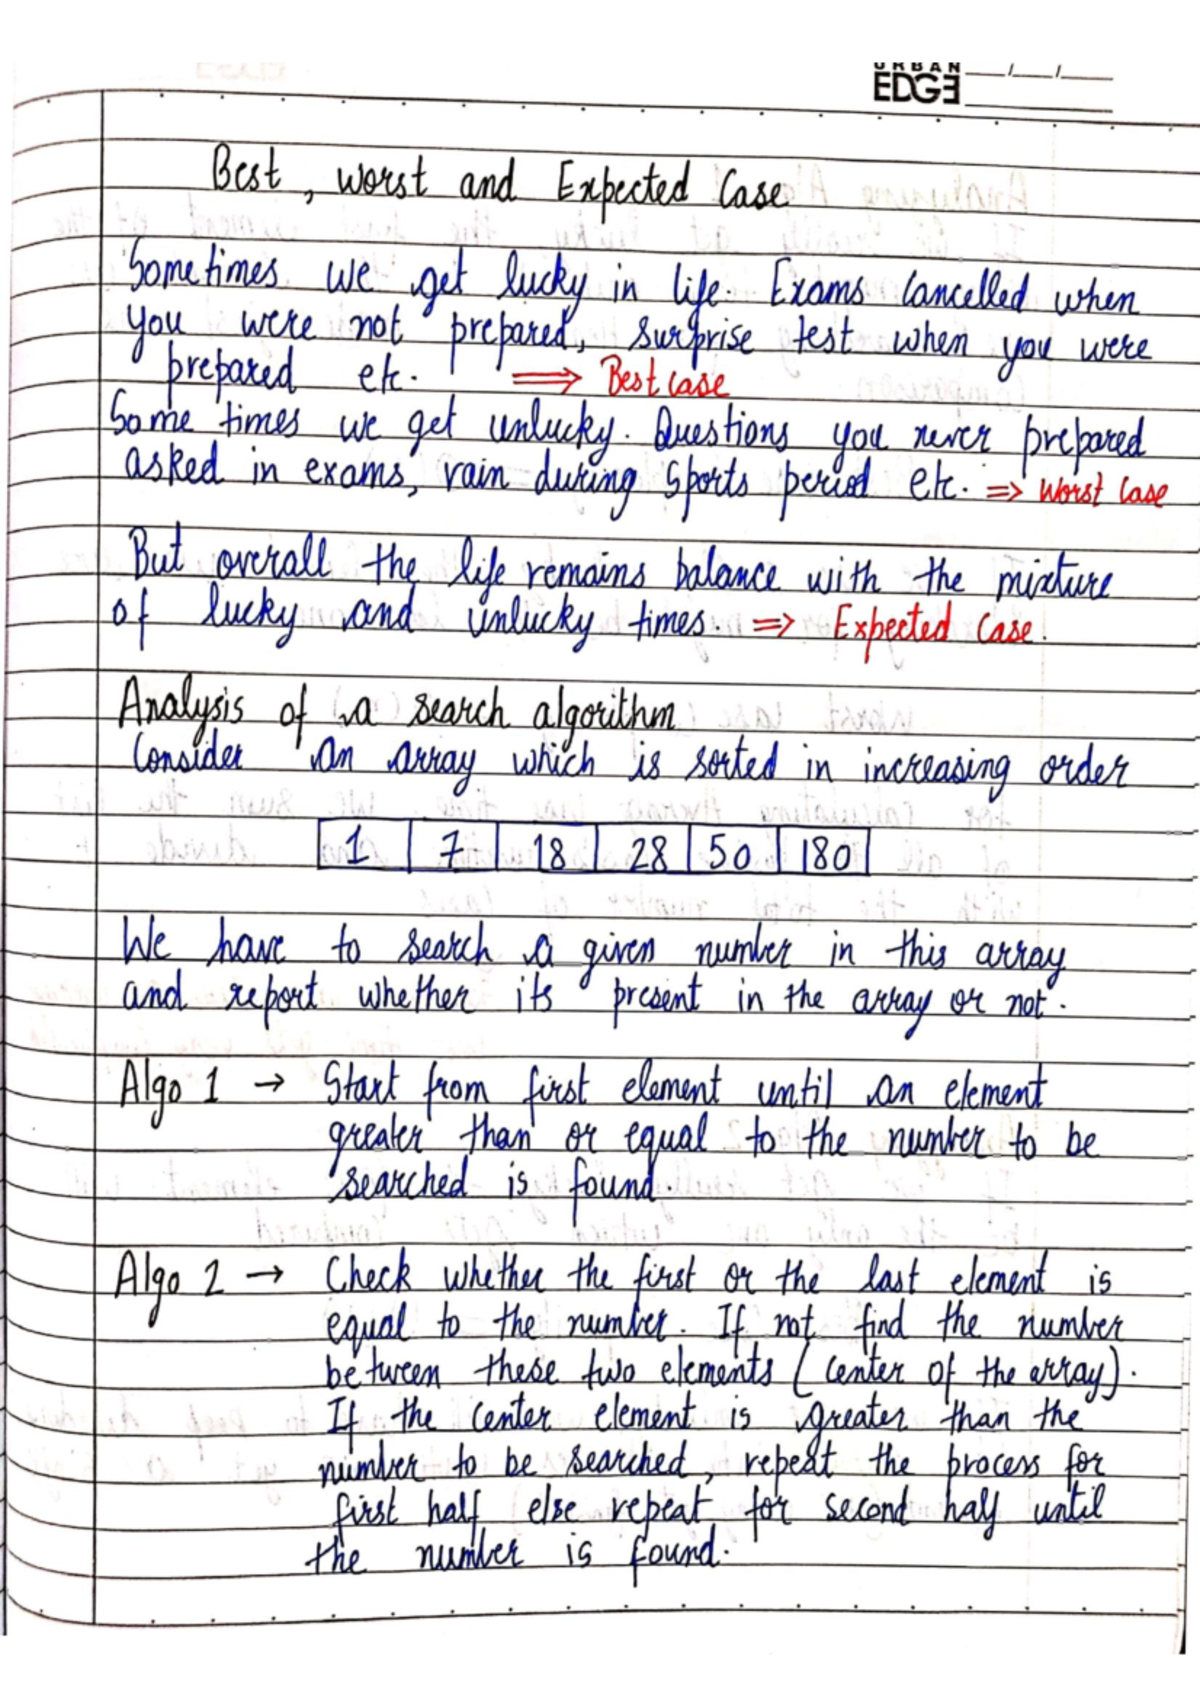 URBAN
EDGE
Best, worst and Expected Case
Sometimes we get lucky in life. Exams Cancelled when
you were not prepared, surprise test when you were
prepared etc. ⟹ Best case
Some times we get unlucky. Questions you never prepared
asked in exams, rain during Sports period etc. => Worst Case
But overall the life remains balance with the mixture
of lucky and unlucky times. => Expected Case.
Analysis of a search algorithm
Consider an array which is sorted in increasing order
1 7 18 28 50 180
We have to search a given number in this array
and report whether its present in the array or not.
Algo 1 → Start from first element until an element
greater than or equal to the number to be
searched is found.
Algo 2 → Check whether the first or the last element is
equal to the number. If not, find the number
between these two elements (center of the array).
If the center element is greater than the
number to be searched, repeat the process for
first half else repeat for second half until
the number is found.